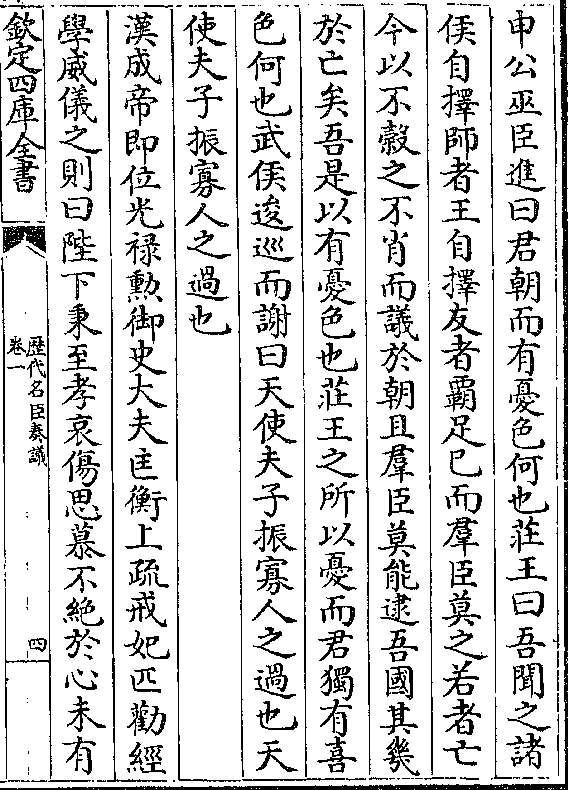 申公巫臣進曰君朝而有憂色何也莊王曰吾聞之諸
侯自擇師者王自擇友者霸足已而羣臣莫之若者亡
今以不穀之不肖而議於朝且羣臣莫能逮吾國其幾
於亡矣吾是以有憂色也莊王之所以憂而君獨有喜
色何也武侯逡巡而謝曰天使夫子振寡人之過也天
使夫子振寡人之過也
漢成帝即位光禄勲御史大夫匡衡上疏戒妃匹勸經
學威儀之則曰陛下秉至孝哀傷思慕不絶於心未有
欽定四庫全書
歴代名臣奏議
卷一
四